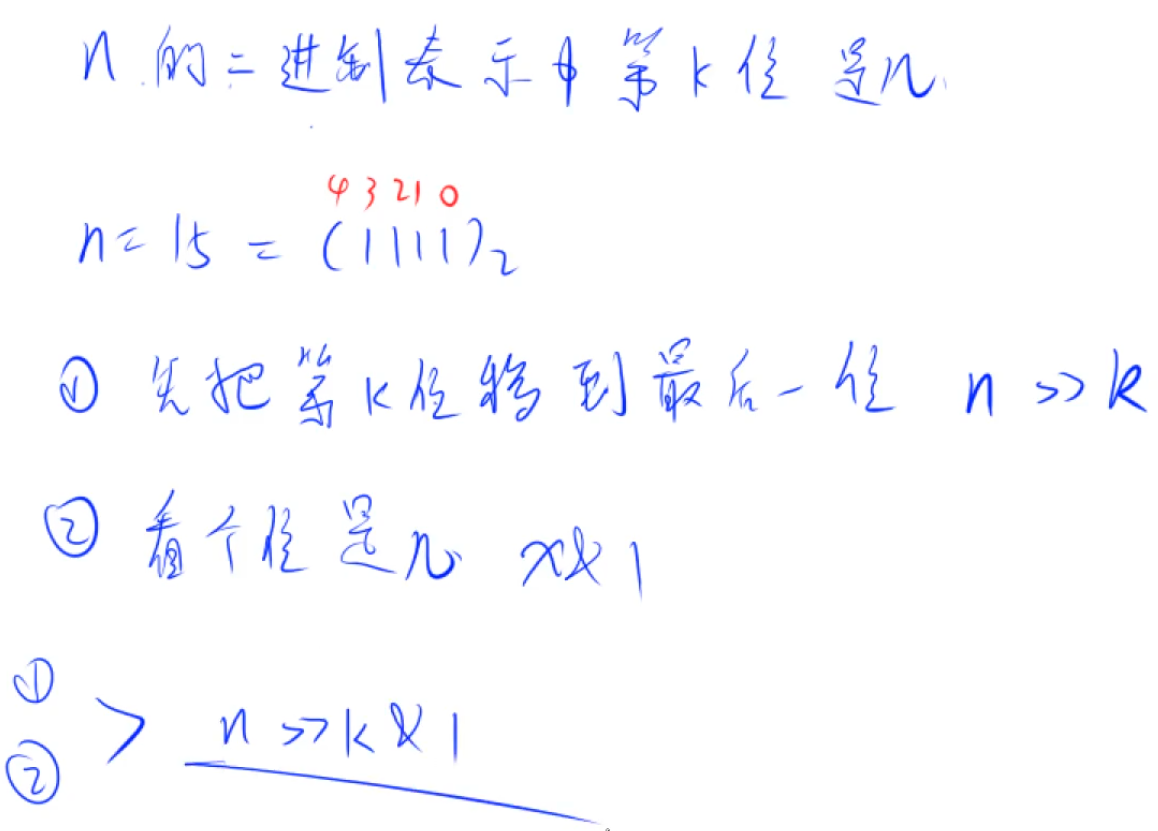 n的二进制表示中第k位是几
4 3 2 1 0
n = 15 = (1111)₂
① 先把第k位移到最后一位 n >> k
② 看个位是几 x & 1
①
② > n >> k & 1